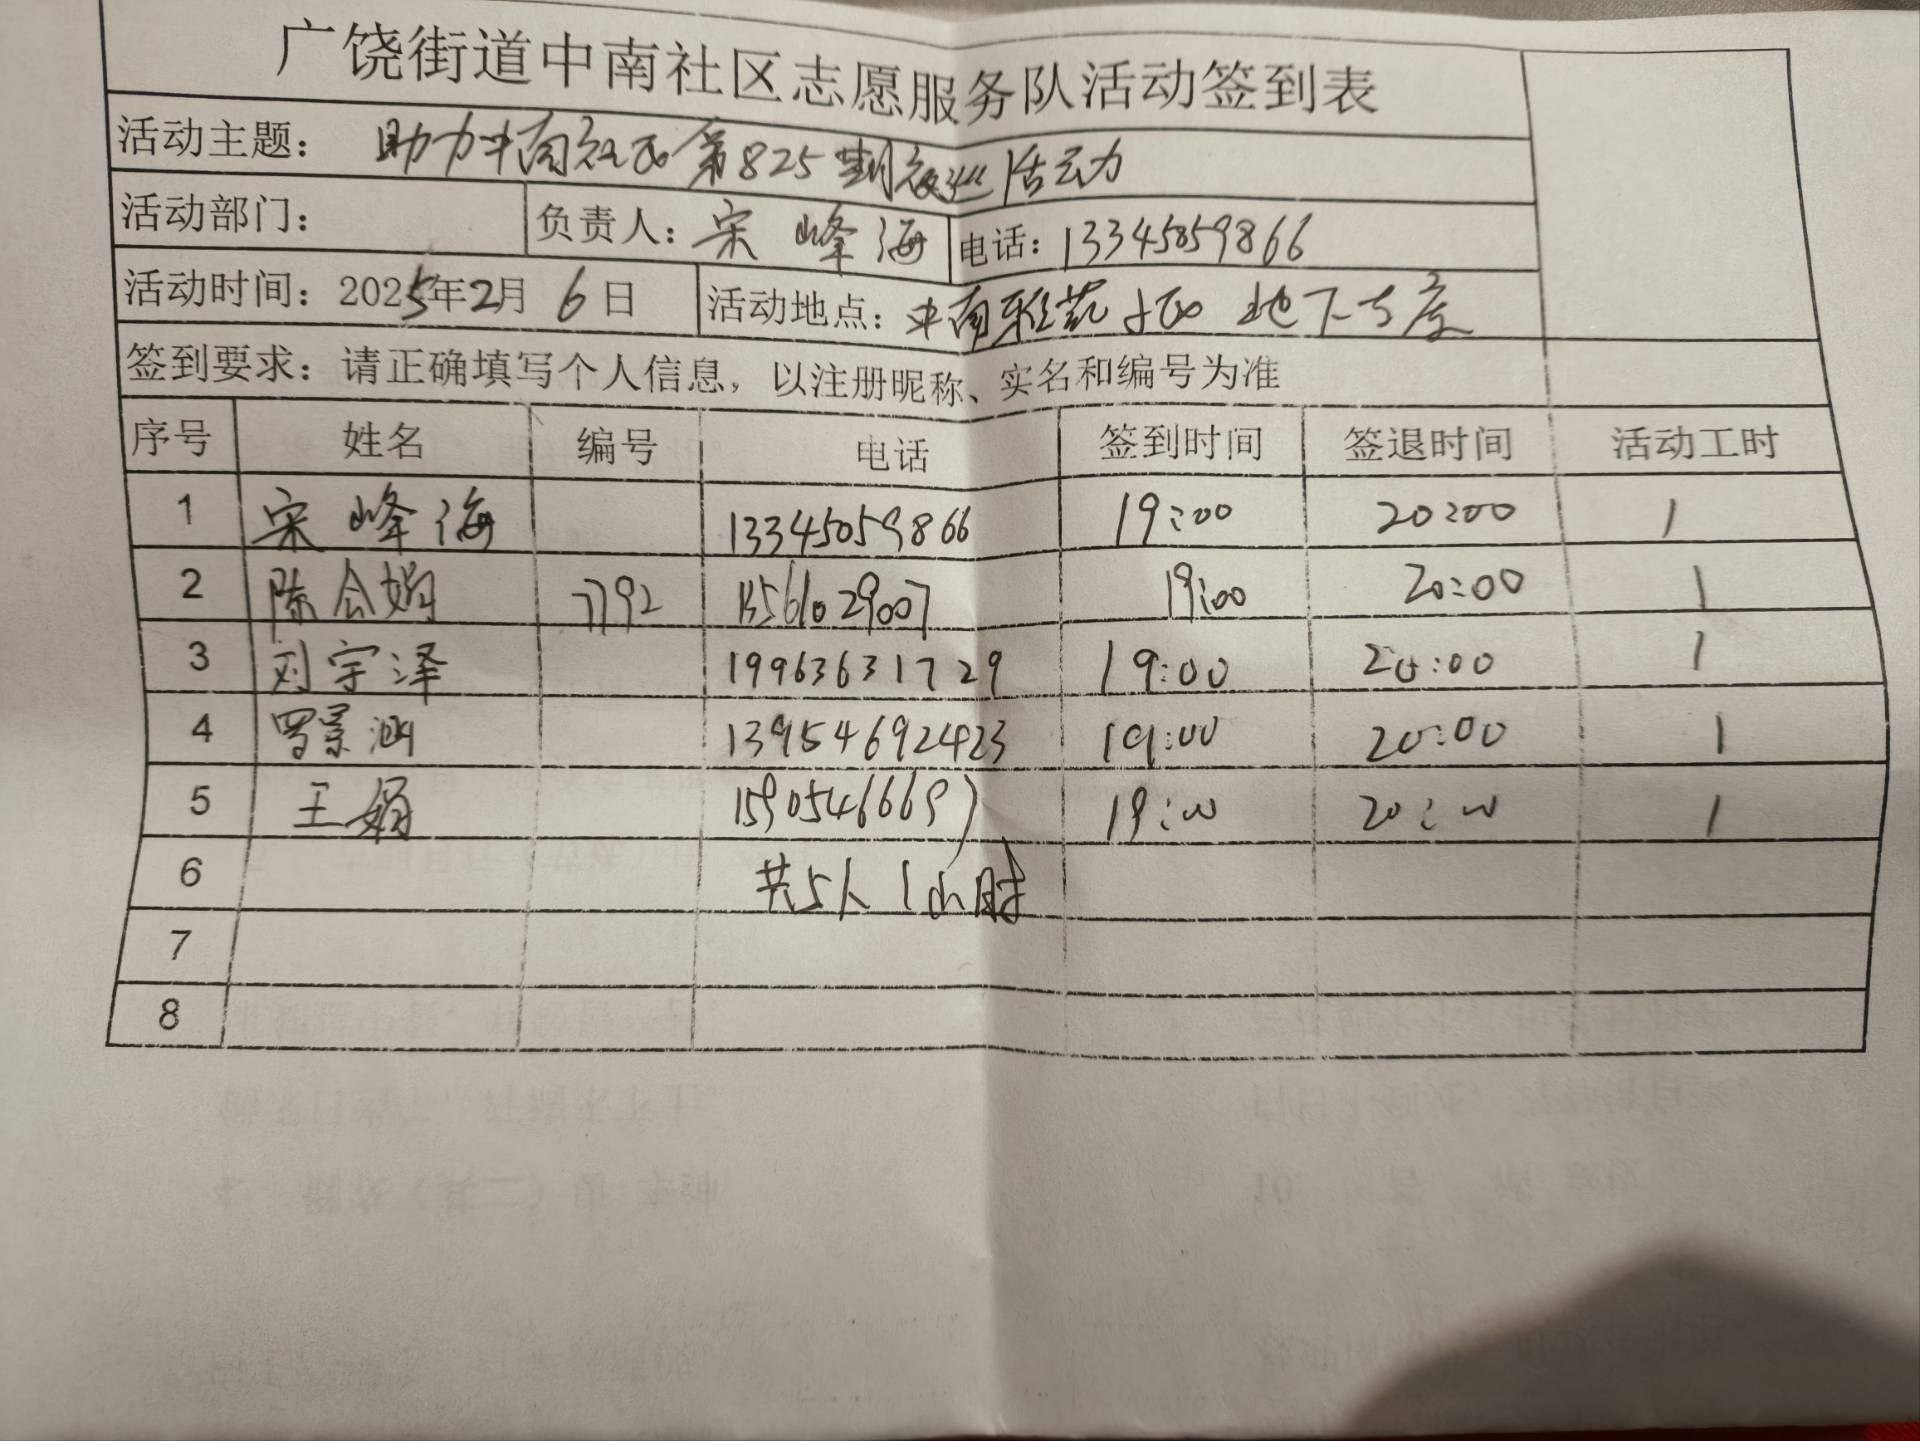 广饶街道中南社区志愿服务队活动签到表
活动主题： 助力中南社区第825期夜巡活动
活动部门： 负责人：宋峰海 电话：13345059866
活动时间：2025年2月6日 活动地点：中南雅苑小区 地下车库
签到要求：请正确填写个人信息，以注册昵称、实名和编号为准
序号 姓名 编号 电话 签到时间 签退时间 活动工时
1 宋峰海 13345059866 19:00 20:00 1
2 陈会娟 7792 13561029007 19:00 20:00 1
3 刘宇泽 19963631729 19:00 20:00 1
4 罗景涵 13954692423 19:00 20:00 1
5 王娟 15905466697 19:00 20:00 1
6 共5人1小时
7
8